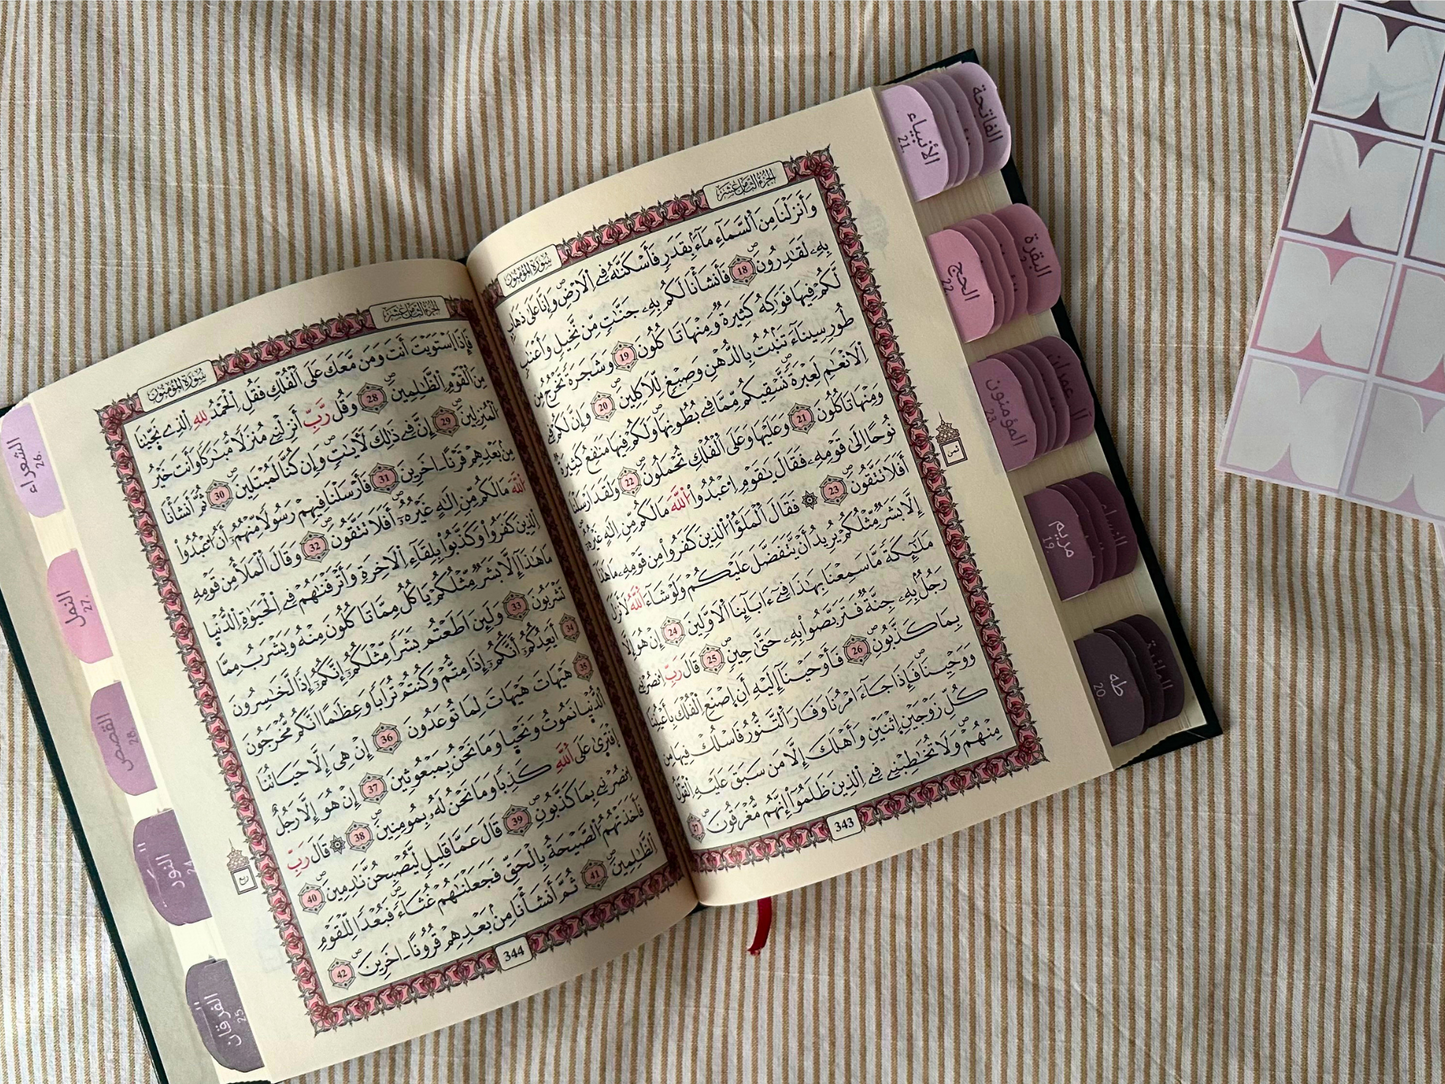 الجزء الثامن عشر
سورة المؤمنون
وَأَنزَلْنَا مِنَ اَ۬لسَّمَآءِ مَآءَۢ بِقَدَرٖ فَأَسْكَنَّٰهُ فِے اِ۬لَارْضِۖ وَإِنَّا عَلَيٰ ذَهَابِۢ
بِهِۦ لَقَٰدِرُونَۖ 18 فَأَنشَأْنَا لَكُم بِهِۦ جَنَّٰتٖ مِّن نَّخِيلٖ وَأَعْنَٰبٖ
لَّكُمْ فِيهَا فَوَٰكِهُ كَثِيرَةٞ وَمِنْهَا تَاكُلُونَۖ 19 وَشَجَرَةٗ تَخْرُجُ مِن
طُورِ سِينَآءَ تَنۢبُتُ بِالدُّهْنِ وَصِبْغٖ لِّلَاكِلِينَۖ 20 وَإِنَّ لَكُمْ فِے
اِ۬لَانْعَٰمِ لَعِبْرَةٗۖ نَّسْقِيكُم مِّمَّا فِے بُطُونِهَا وَلَكُمْ فِيهَا مَنَٰفِعُ كَثِيرَةٞ
وَمِنْهَا تَاكُلُونَ 21 وَعَلَيْهَا وَعَلَى اَ۬لْفُلْكِ تُحْمَلُونَۖ 22 وَلَقَدَ اَرْسَلْنَا
نُوحاً اِلَيٰ قَوْمِهِۦ فَقَالَ يَٰقَوْمِ اِ۟عْبُدُواْ اُ۬للَّهَ مَا لَكُم مِّنِ اِلَٰهٍ غَيْرُهُۥٓ
أَفَلَا تَتَّقُونَۖ 23 ۞ فَقَالَ اَ۬لْمَلَؤُاْ اُ۬لذِينَ كَفَرُواْ مِن قَوْمِهِۦ مَا هَٰذَآ
إِلَّا بَشَرٞ مِّثْلُكُمْ يُرِيدُ أَنْ يَّتَفَضَّلَ عَلَيْكُمْ وَلَوْ شَآءَ اَ۬للَّهُ لَأَنزَلَ
مَلَٰٓئِكَةٗ مَّا سَمِعْنَا بِهَٰذَا فِےٓ ءَابَآئِنَا اَ۬لَاوَّلِينَۖ 24 إِنْ هُوَ إِلَّا
رَجُلُۢ بِهِۦ جِنَّةٞ فَتَرَبَّصُواْ بِهِۦ حَتَّيٰ حِينٖۖ 25 قَالَ رَبِّ اِ۟نصُرْنِے
بِمَا كَذَّبُونِۖ 26 فَأَوْحَيْنَآ إِلَيْهِ أَنِ اِ۪صْنَعِ اِ۬لْفُلْكَ بِأَعْيُنِنَا
وَوَحْيِنَاۖ فَإِذَا جَآءَ امْرُنَا وَفَارَ اَ۬لتَّنُّورُ فَاسْلُكْ فِيهَا مِن
كُلِّ زَوْجَيْنِ اِ۪ثْنَيْنِ وَأَهْلَكَ إِلَّا مَن سَبَقَ عَلَيْهِ اِ۬لْقَوْلُ
مِنْهُمْۖ وَلَا تُخَٰطِبْنِے فِے اِ۬لذِينَ ظَلَمُوٓاْ إِنَّهُم مُّغْرَقُونَۖ 27
343
ثمن
الجزء الثامن عشر
سورة المؤمنون
فَإِذَا اَ۪سْتَوَيْتَ أَنتَ وَمَن مَّعَكَ عَلَى اَ۬لْفُلْكِ فَقُلِ اِ۬لْحَمْدُ لِلهِ اِ۬لذِے نَجّ۪يٰنَا
مِنَ اَ۬لْقَوْمِ اِ۬لظَّٰلِمِينَۖ 28 وَقُل رَّبِّ أَنزِلْنِے مُنزَلاٗ مُّبَٰرَكاٗ وَأَنتَ خَيْرُ
اُ۬لْمُنزِلِينَۖ 29 إِنَّ فِے ذَٰلِكَ لَأٓيَٰتٖ وَإِن كُنَّا لَمُبْتَلِينَۖ 30 ثُمَّ أَنشَأْنَا
مِنۢ بَعْدِهِمْ قَرْناً اٰخَرِينَ 31 فَأَرْسَلْنَا فِيهِمْ رَسُولاٗ مِّنْهُمُۥٓ أَنُ اُ۟عْبُدُواْ
اُ۬للَّهَ مَا لَكُم مِّنِ اِلَٰهٍ غَيْرُهُۥٓۖ أَفَلَا تَتَّقُونَۖ 32 وَقَالَ اَ۬لْمَلَأُ مِن قَوْمِهِ
اِ۬لذِينَ كَفَرُواْ وَكَذَّبُواْ بِلِقَآءِ اِ۬لَاخِرَةِ وَأَتْرَفْنَٰهُمْ فِے اِ۬لْحَيَوٰةِ اِ۬لدُّنْيَا
مَا هَٰذَآ إِلَّا بَشَرٞ مِّثْلُكُمْ يَاكُلُ مِمَّا تَاكُلُونَ مِنْهُ وَيَشْرَبُ مِمَّا
تَشْرَبُونَۖ 33 وَلَئِنَ اَطَعْتُم بَشَراٗ مِّثْلَكُمُۥٓ إِنَّكُمُۥٓ إِذاٗ لَّخَٰسِرُونَ 34
أَيَعِدُكُمُۥٓ أَنَّكُمُۥٓ إِذَا مِتُّمْ وَكُنتُمْ تُرَاباٗ وَعِظَٰماً اَنَّكُم مُّخْرَجُونَ
35 هَيْهَاتَ هَيْهَاتَ لِمَا تُوعَدُونَۖ 36 إِنْ هِيَ إِلَّا حَيَاتُنَا
اَ۬لدُّنْيَا نَمُوتُ وَنَحْيَا وَمَا نَحْنُ بِمَبْعُوثِينَۖ 37 إِنْ هُوَ إِلَّا رَجُلٌ
اِ۪فْتَر۪يٰ عَلَى اَ۬للَّهِ كَذِباٗ وَمَا نَحْنُ لَهُۥ بِمُومِنِينَۖ 38 ۞ قَالَ رَبِّ
اِ۟نصُرْنِے بِمَا كَذَّبُونِۖ 39 قَالَ عَمَّا قَلِيلٖ لَّيُصْبِحُنَّ نَٰدِمِينَۖ 40
فَأَخَذَتْهُمُ اُ۬لصَّيْحَةُ بِالْحَقِّ فَجَعَلْنَٰهُمْ غُثَآءٗۖ فَبُعْداٗ لِّلْقَوْمِ
اِ۬لظَّٰلِمِينَۖ 41 ثُمَّ أَنشَأْنَا مِنۢ بَعْدِهِمْ قُرُوناً اٰخَرِينَۖ 42
344
ربع
الفاتحة
الأنبياء
21.
البقرة
الحج
22
آل عمران
المؤمنون
23
النساء
مريم
19
المائدة
طه
20
الشعراء
26.
النمل
27.
القصص
28.
النور
24
الفرقان
25.